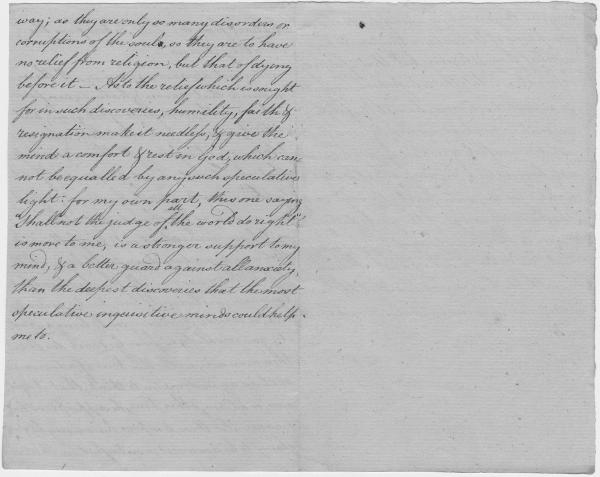 way; as they are only so many disorders or
corruptions of the soul, so they are to have
no relief from religion, but that of dyeing
before it – As to the relief which is sought
for in such discoveries, humility, faith &
resignation make it needless, & give the
mind a comfort & rest in God, which can
not be equalled by any such speculative
light: for my own part, this one saying
"Shall not the judge of all the world do right"
is more to me, is a stronger support to my
mind, & a better guard against all anxiety,
than the deepest discoveries that the most
speculative inquisitive minds could help
me to.